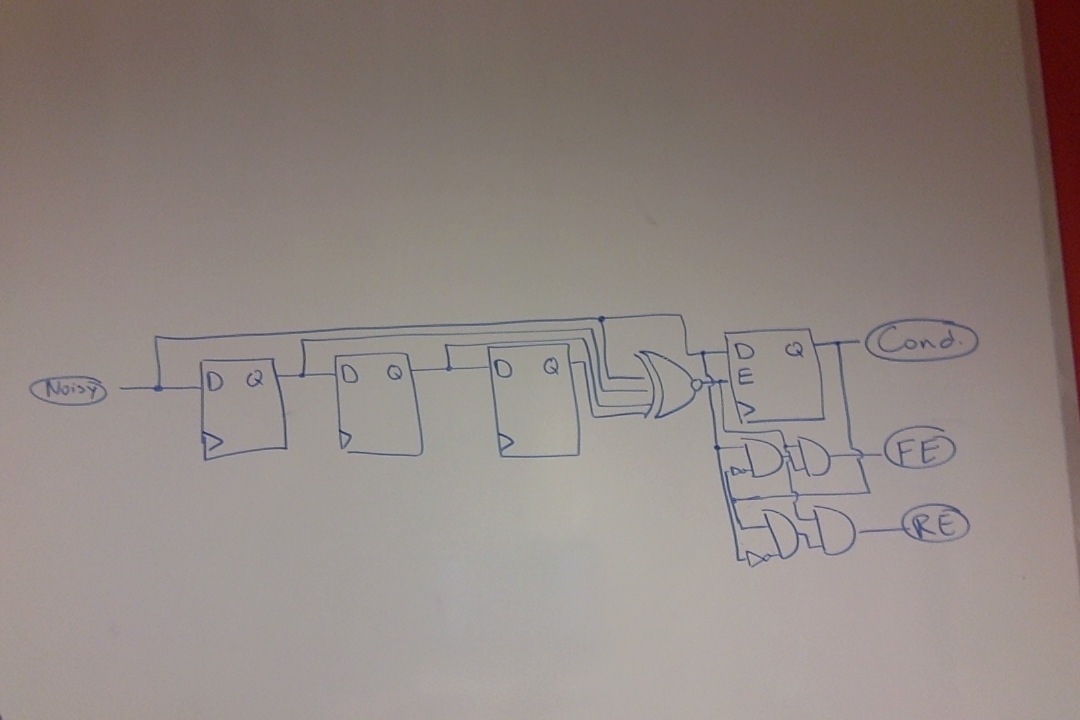 Noisy
D Q
D Q
D Q
D Q
E
Cond.
FE
RE